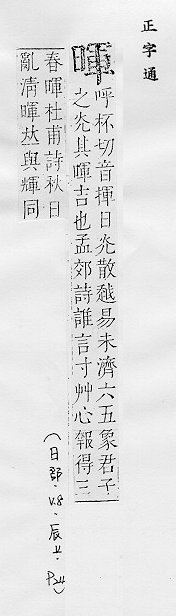 正字通
暉呼杯切音揮日灮散越易未濟六五象君子
之灮其暉吉也孟郊詩誰言寸艸心報得三
春暉杜甫詩秋日
亂清暉𠀤與輝同
(日部．V.8．辰上．P24)